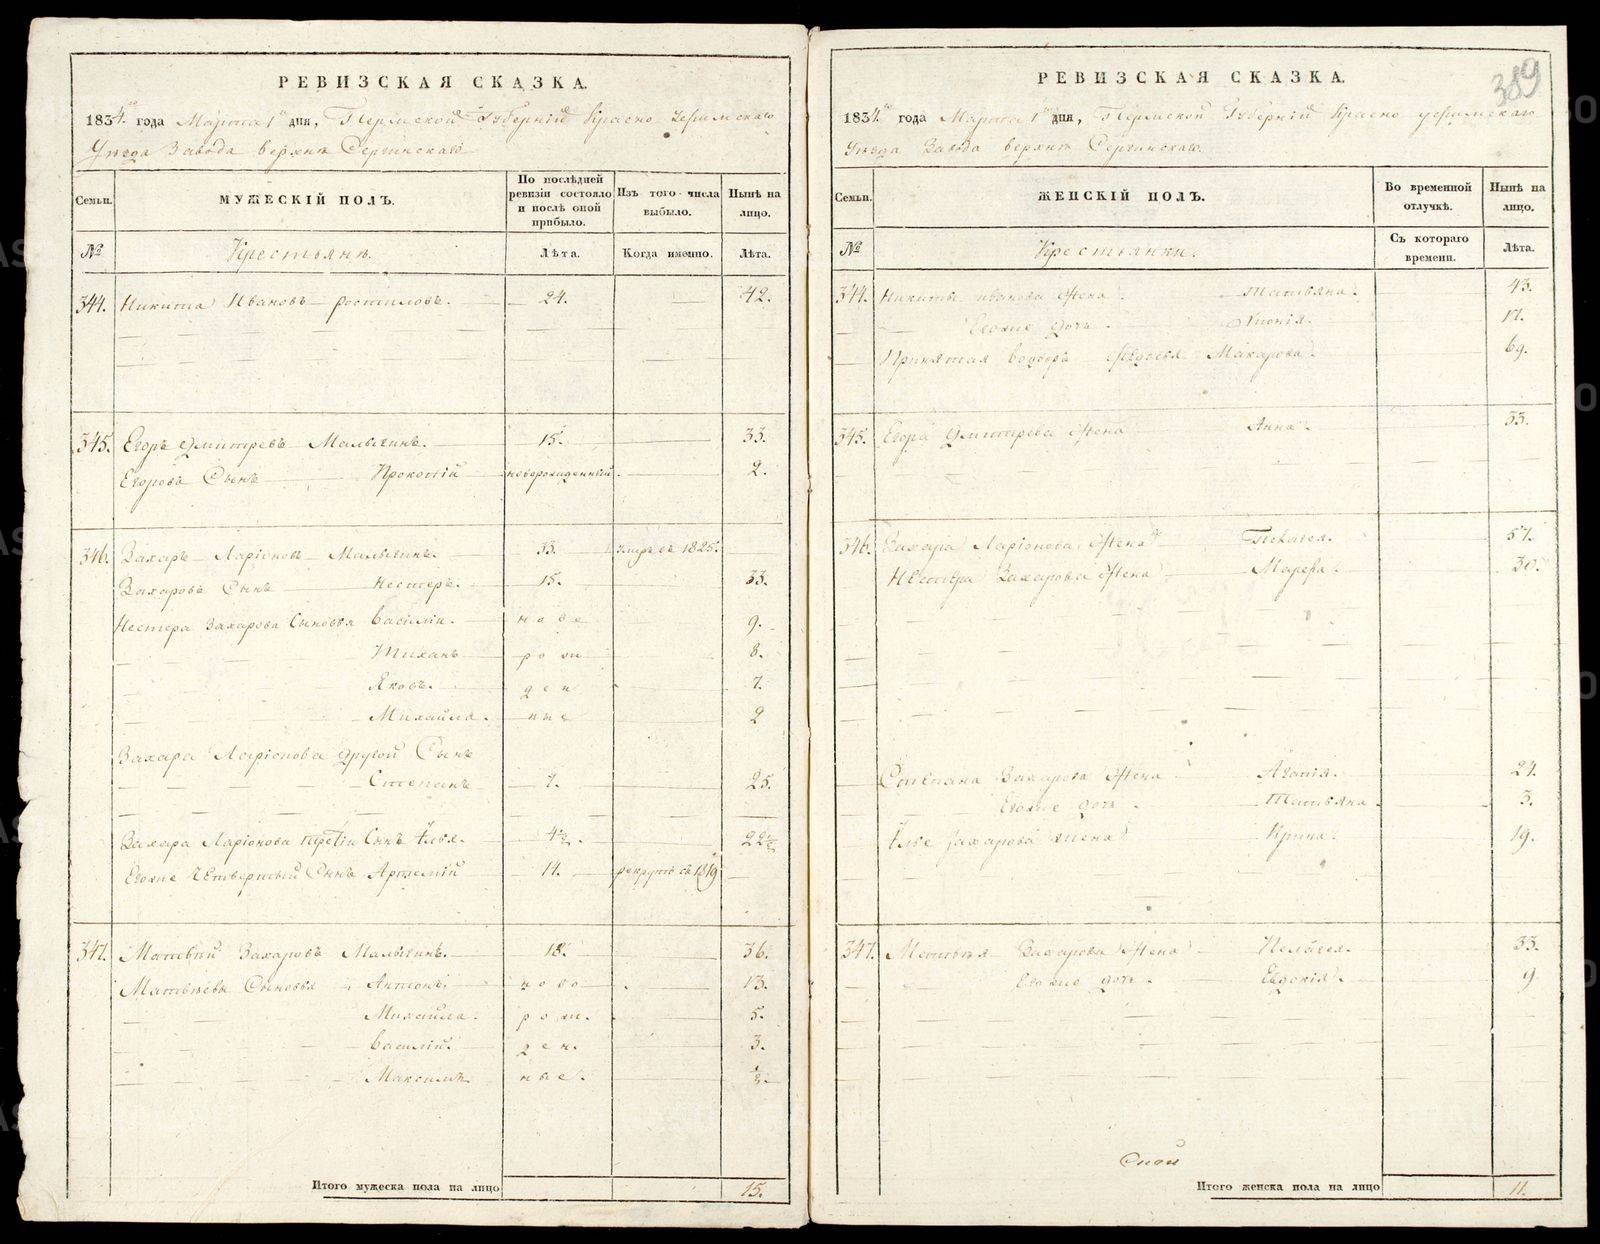 РЕВИЗСКАЯ СКАЗКА.
1834 года Марта 1 дня, Пермской Губернiи Красно Уфимскаго
Уѣзда Завода верхнѣ Сергинскаго
Семьи.
МУЖЕСКIЙ ПОЛЪ.
По послѣдней ревизiи состояло и послѣ оной прибыло.
Изъ того числа выбыло.
Нынѣ на лицо.
№
Крестьянѣ.
Лѣта.
Когда именно.
Лѣта.
344. Никита Ивановъ 24. 42.
345. Егоръ Дмитревъ Малыгинъ. 15. 33.
Егоровъ Сынъ Прокопiй новорожденный. 2.
346. Захаръ Ларiоновъ Малыгинъ. 33. умеръ въ 1825.
Захаровъ Сынъ Нестеръ. 15. 33.
Нестера Захарова Сыновья Василiи. ново 9.
Тиханъ рож 8.
Яковъ. ден 7.
Михайла. ные 2
Захара Ларiонова другой Сынъ
Степанъ 7. 25.
Захара Ларiонова третiи Сынъ Илья. 4½. 22½
Евоже Четвертый Сынъ Артемiй 14. рекрутъ съ 1819
347. Матвѣй Захаровъ Малыгинъ. 18. 36.
Матвѣевы Сыновья Антонъ. ново 13.
Михайла. рож. 5.
Василiй. ден. 3.
Максимъ ные. ½.
Итого мужеска пола на лицо 15.
389
РЕВИЗСКАЯ СКАЗКА.
1834 года Марта 1 дня, Пермской Губернiй Красно уфимскаго
Уѣзда Завода верхнѣ Сергинскаго.
Семьи.
ЖЕНСКIЙ ПОЛЪ.
Во временной отлучкѣ.
Нынѣ на лицо.
№
Крестьянки.
Съ котораго времени.
Лѣта.
344. Никиты иванова жена Татьяна. 43.
Евоже дочь. 17.
Принятая вдова Федосья Макарова. 69.
345. Егора Дмитрева жена Анна. 33.
346. Захара Ларiонова жена Пелагея. 57.
Нестера Захарова жена Марфа. 30.
Степана Захарова жена Агапiя. 24.
Евоже дочь. Татьяна. 3.
Илье захарова жена Ирина. 19.
347. Матвѣя Захарова жена Пелагея. 33.
Евоже дочь. Евдокiя. 9
Итого женска пола на лицо 11.